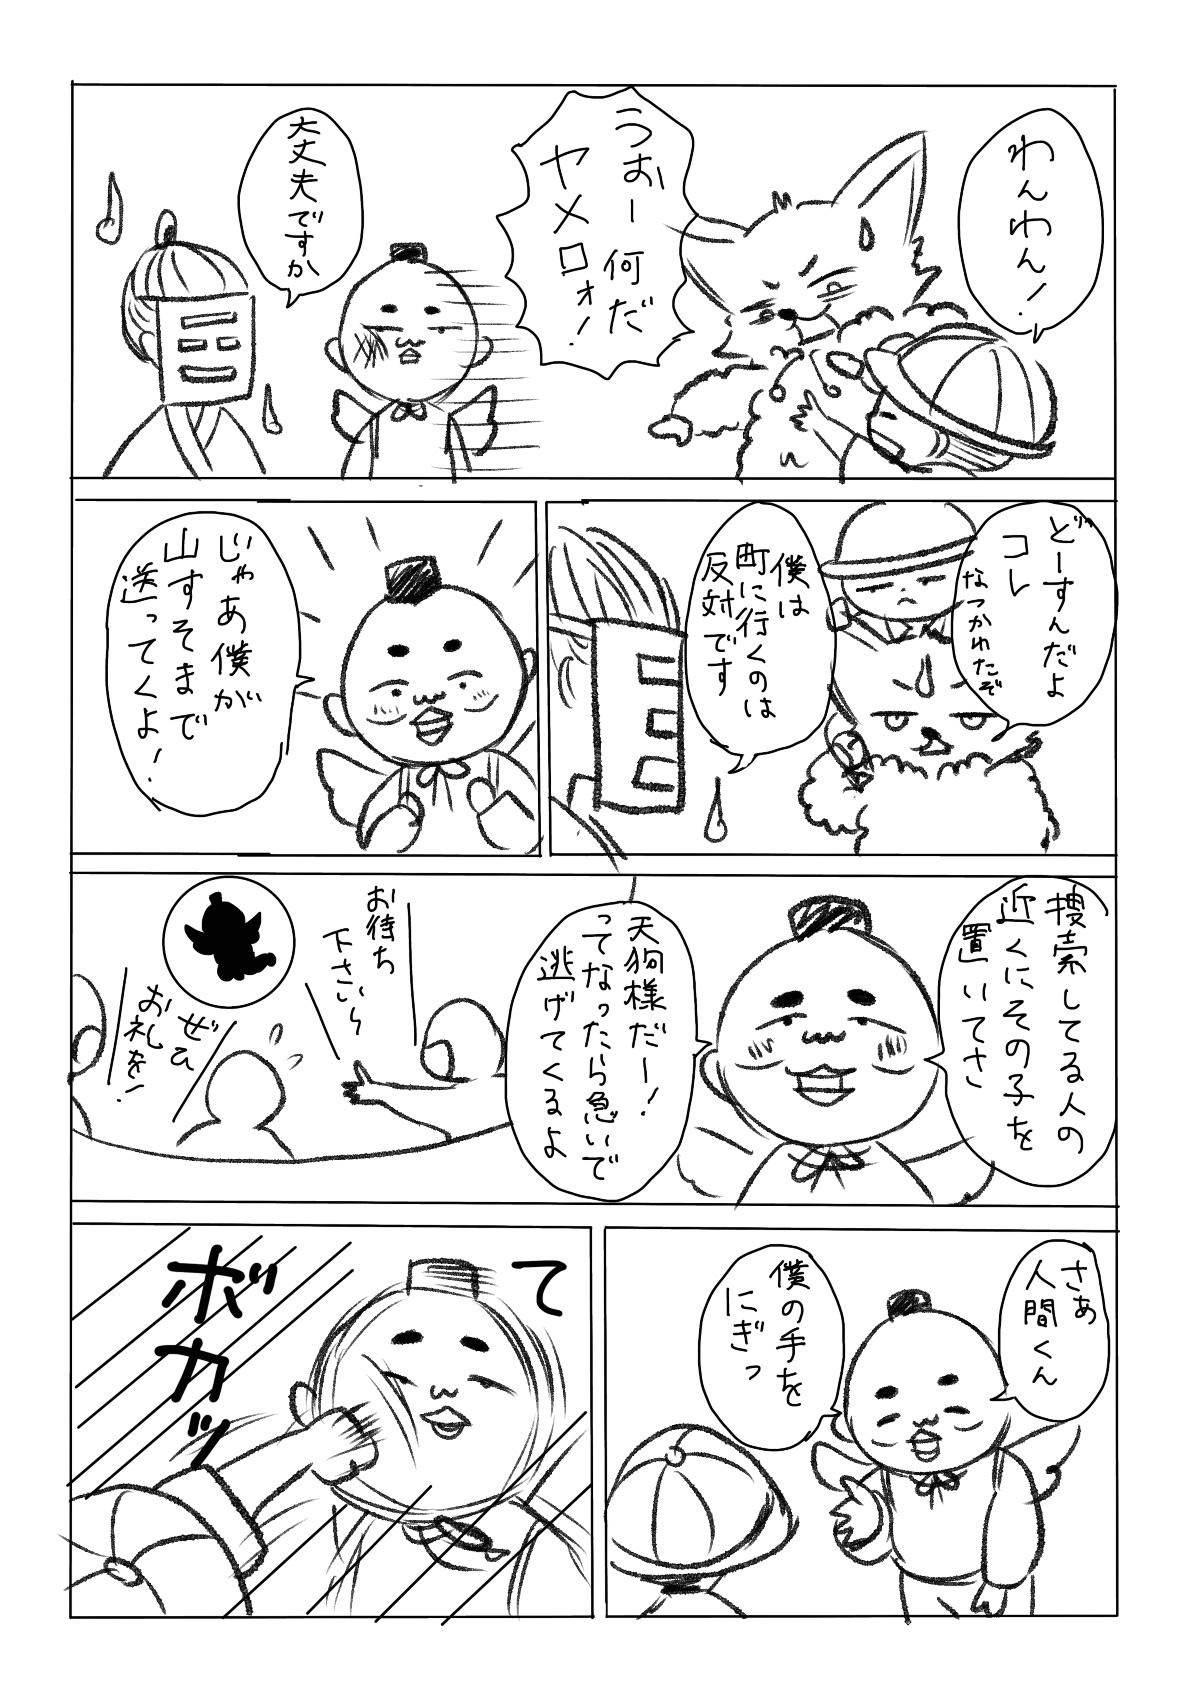 わんわん!
うおー何だ
ヤメロォ!
大丈夫ですか
どーすんだよ
コレ
なつかれたぞ
僕は
町に行くのは
反対です
じゃあ僕が
山すそまで
送ってくよ!
捜索してる人の
近くにその子を
置いてさ
天狗様だー!
ってなったら急いで
逃げてくるよ
お待ち
下さい〜
ぜひ
お礼を!
さあ
人間くん
僕の手を
にぎっ
て
ボカッ